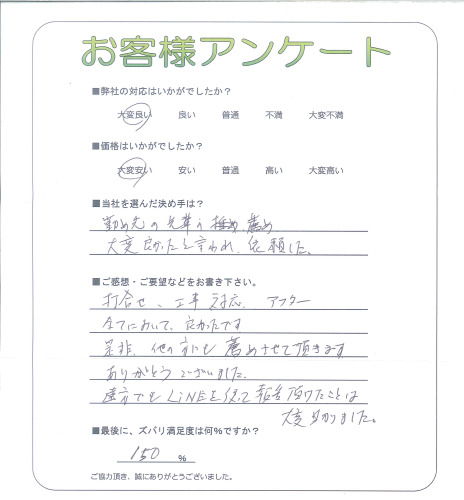 お客様アンケート
■弊社の対応はいかがでしたか?
大変良い 良い 普通 不満 大変不満
■価格はいかがでしたか?
大変安い 安い 普通 高い 大変高い
■当社を選んだ決め手は?
勤め先の先輩の 薦め
大変良かったと言われ、依頼した。
■ご感想・ご要望などをお書き下さい。
打合せ、工事対応、アフター
全てにおいて、良かったです
是非、他の方にも薦めさせて頂きます
ありがとうございました。
遠方でもLiNEを使って報告頂けたことは
大変助かりました。
■最後に、ズバリ満足度は何%ですか?
150 %
ご協力頂き、誠にありがとうございました。